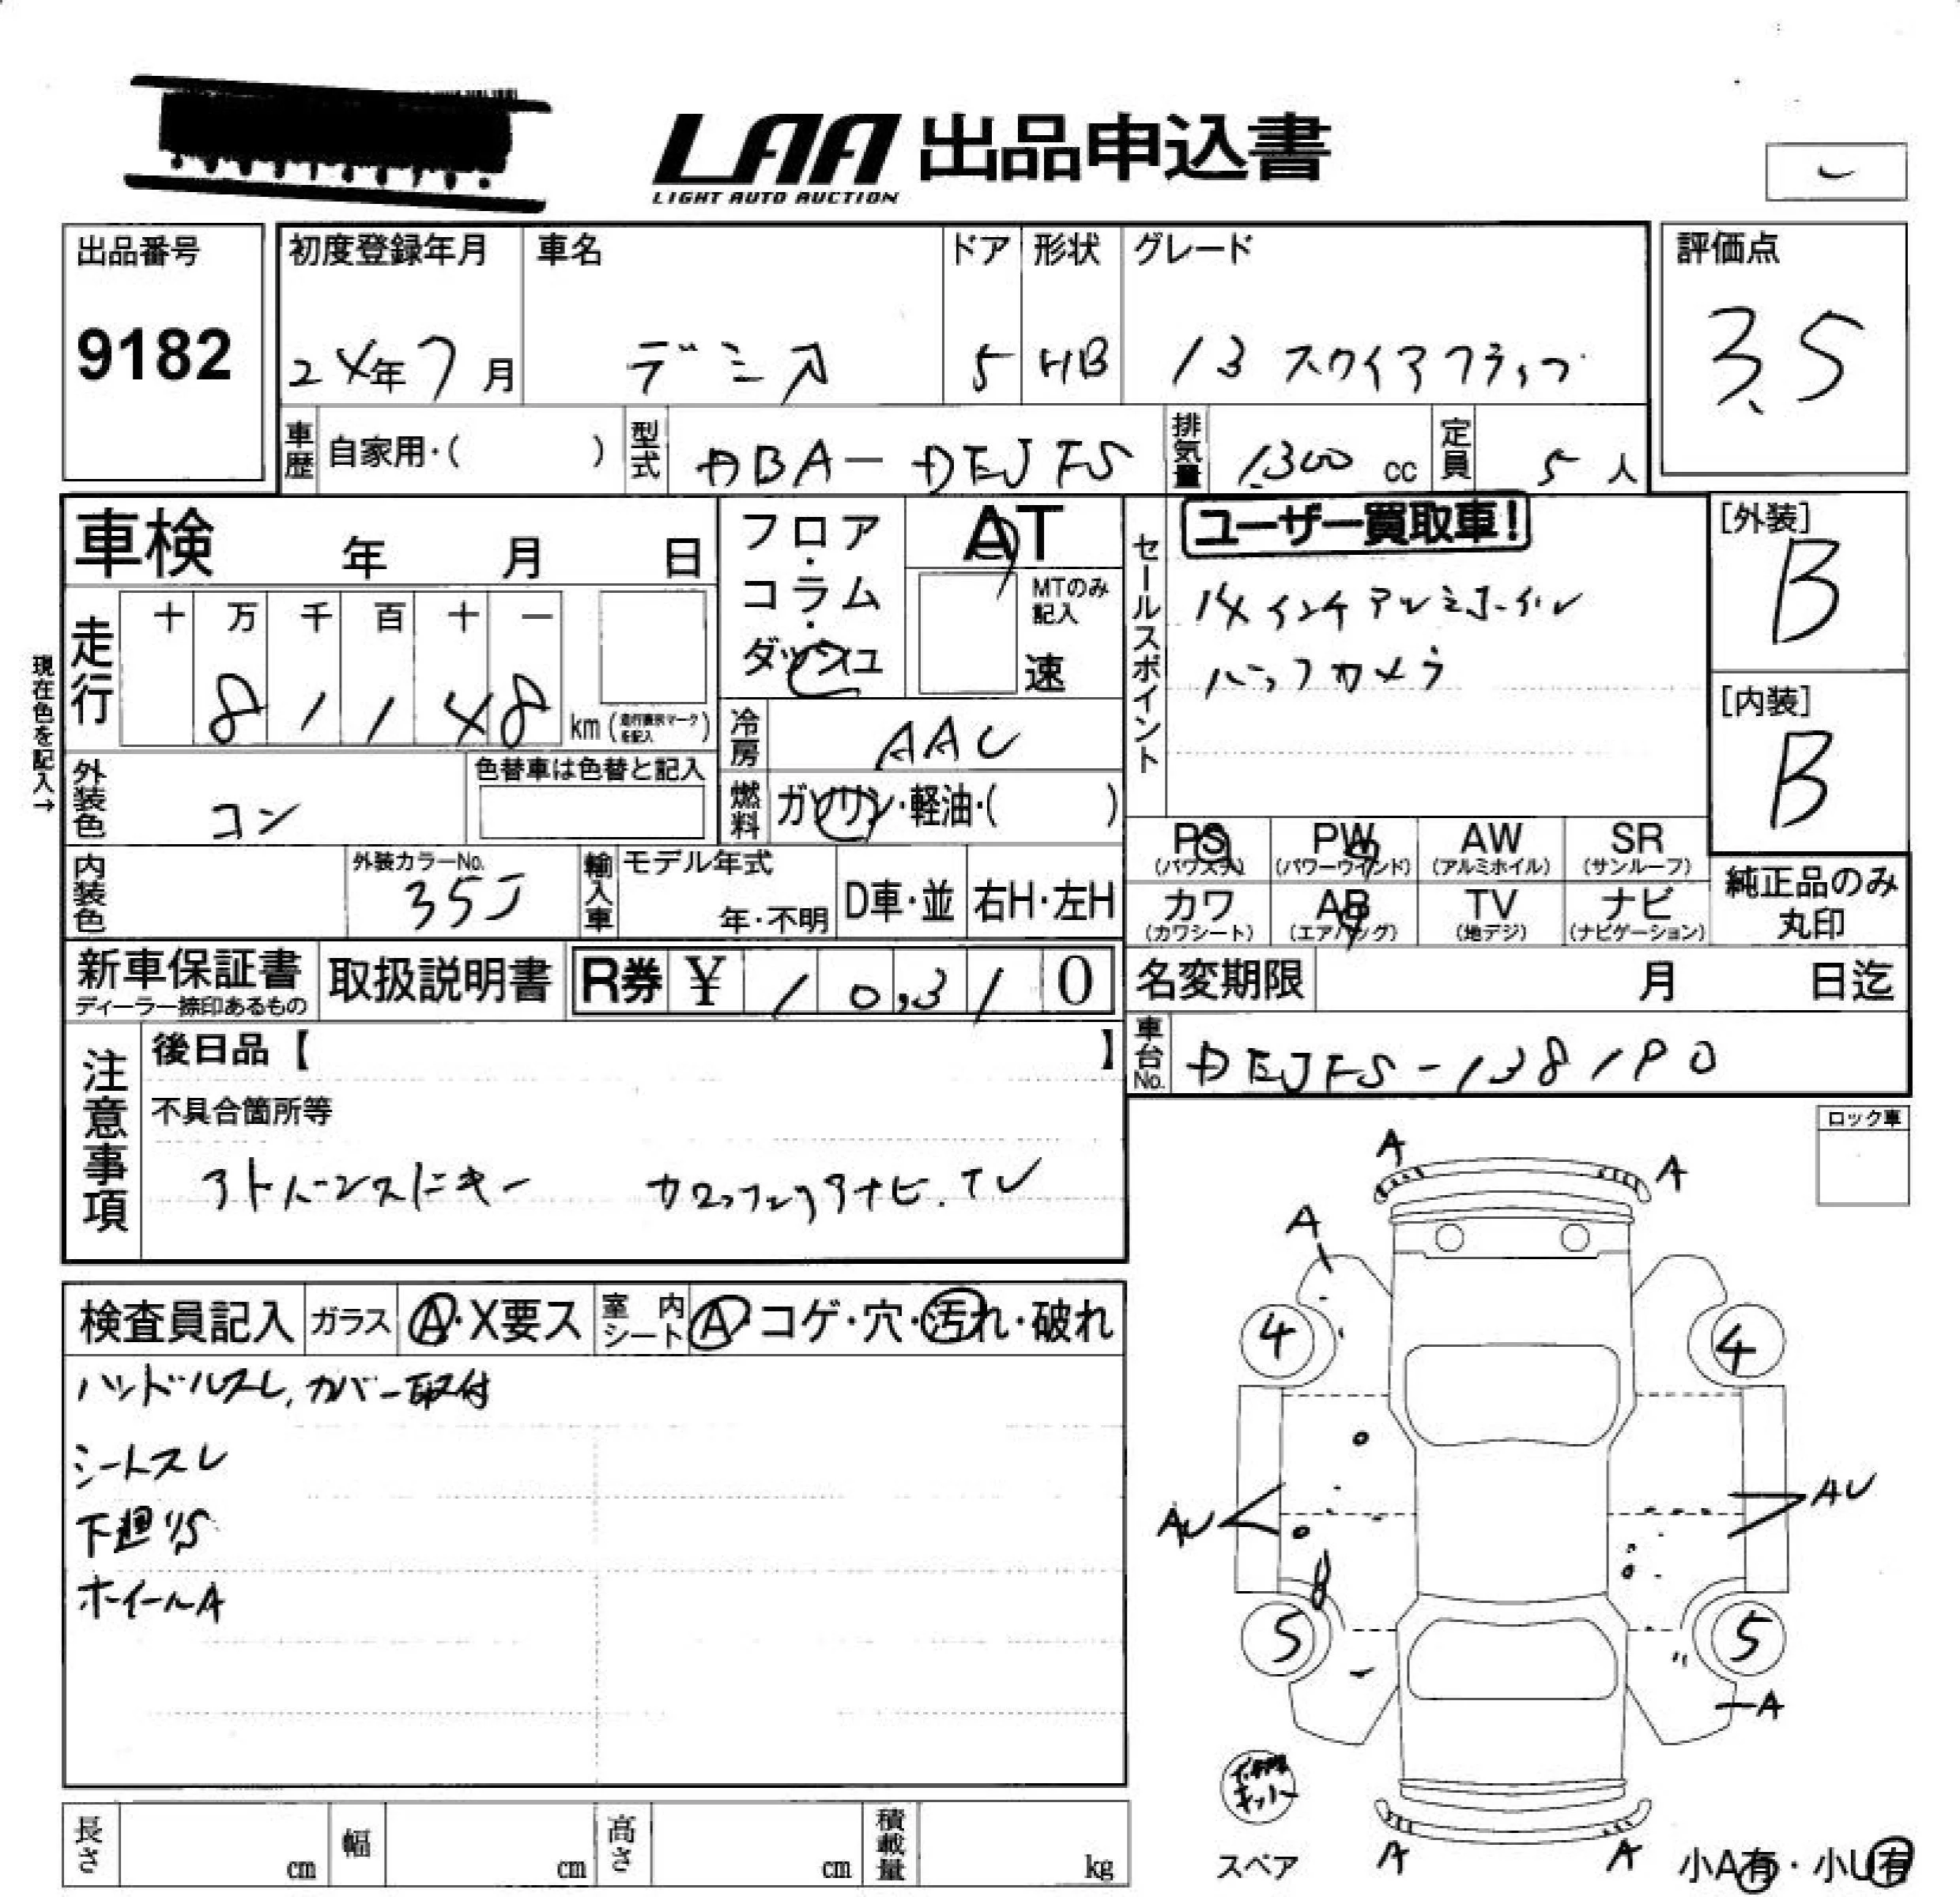 LAA 出品申込書
LIGHT AUTO AUCTION
出品番号
9182
初度登録年月
24年7月
車名
デミオ
ドア
5
形状
HB
グレード
13 スカイアクティブ
評価点
3.5
車歴 自家用・( )
型式 DBA-DEJFS
排気量 1,300 cc
定員 5 人
車検 年 月 日
フロア・コラム・ダッシュ
AT
MTのみ記入
速
セールスポイント
ユーザー買取車!
14インチアルミホイル
バックカメラ
[外装]
B
[内装]
B
現在色を記入→
走行
十 万 千 百 十 一
8 1 1 4 8 km (走行表示マークを記入)
冷房 AAC
燃料 ガソリン・軽油・( )
外装色 コン
色替車は色替と記入
内装色
外装カラーNo.
35J
輸入車
モデル年式
年・不明
D車・並
右H・左H
PS (パワステ)
PW (パワーウインド)
AW (アルミホイル)
SR (サンルーフ)
カワ (カワシート)
AB (エアバッグ)
TV (地デジ)
ナビ (ナビゲーション)
純正品のみ
丸印
新車保証書
ディーラー捺印あるもの
取扱説明書
R券 ¥ 10,310
名変期限 月 日迄
車台No. DEJFS-138190
注意事項
後日品【 】
不具合箇所等
アドバーンストキー
ナビ.TV
ロック車
検査員記入
ガラス A・X要ス
室内シート A・コゲ・穴・汚れ・破れ
ハンドルスレ、カバー取付
シートスレ
下廻りS
ホイールA
A
A
A
4
4
AU
AU
8
5
5
A
キット
スペア
A
A
小A有・小U有
長さ cm
幅 cm
高さ cm
積載量 kg